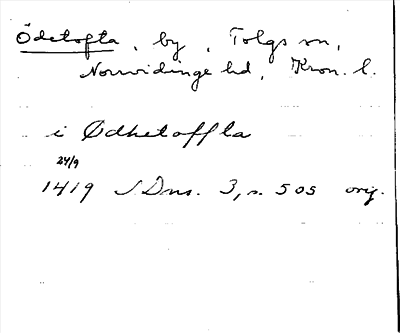 Ödetofta, by, Tolgs sn,
Norrvidinge hd, Kron. l.
i Ødhetoffta
24/9
1419 SDns. 3, s. 505 orig.